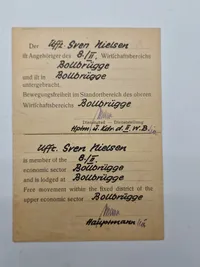 Der Uffz. Sven Nielsen
ist Angehöriger des 8./II. Wirtschaftsbereichs
Bollbrügge
und ist in Bollbrügge
untergebracht.
Bewegungsfreiheit im Standortbereich des oberen
Wirtschaftsbereichs Bollbrügge
Dienstgrad Dienststellung
Hptm. u. Kdr. d. II. W. B.
Uffz. Sven Nielsen
is member of the 8./II.
economic sector Bollbrügge
and is lodged at Bollbrügge
Free movement within the fixed district of the
upper economic sector Bollbrügge
Hauptmann